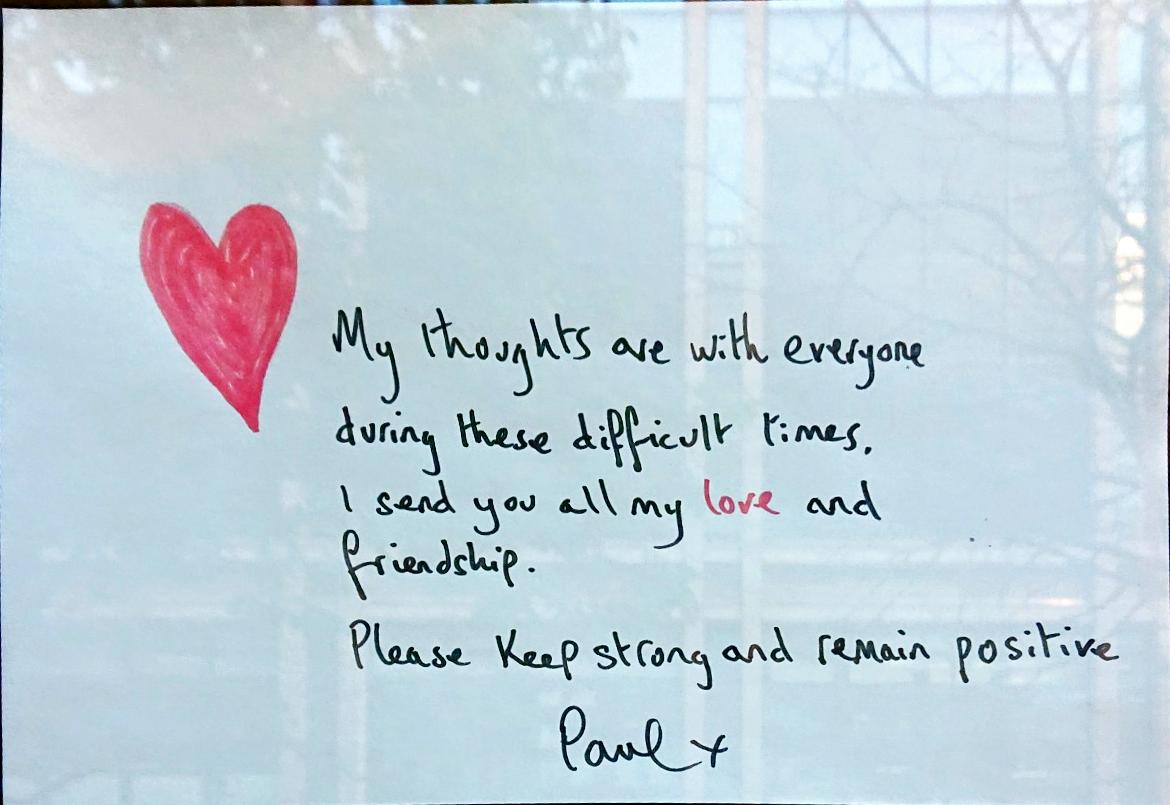 My thoughts are with everyone
during these difficult times.
I send you all my love and
friendship.
Please Keep strong and remain positive
Paul x